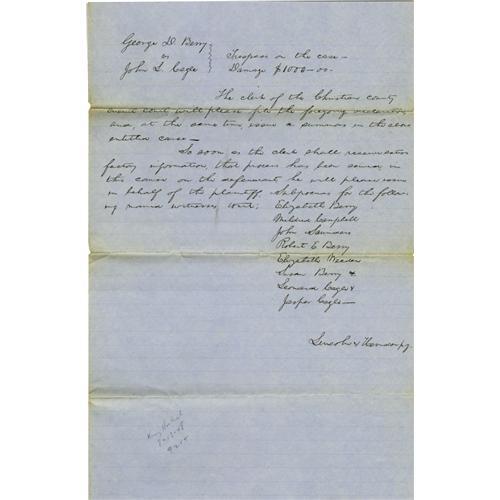 George D. Berry
vs
John L. Cagle
Trespass on the case—
Damage $1000-00-
The clerk of the Christian county
circuit court will please file the foregoing declaration
and, at the same time, issue a summons in the above
entitled cause—
So soon as the clerk shall receive satis-
factory information, that process has been served, in
this cause on the defendant he will please issue
in behalf of the plaintiff, Subpoenas for the follow-
ing named witnesses, towit;
Elizabeth Berry
Mildred Campbell
John Saunders
Robert E Berry
Elizabeth
Susan Berry &
Leonard Cagle &
Jasper Cagle—
Lincoln & Herndon p.q.